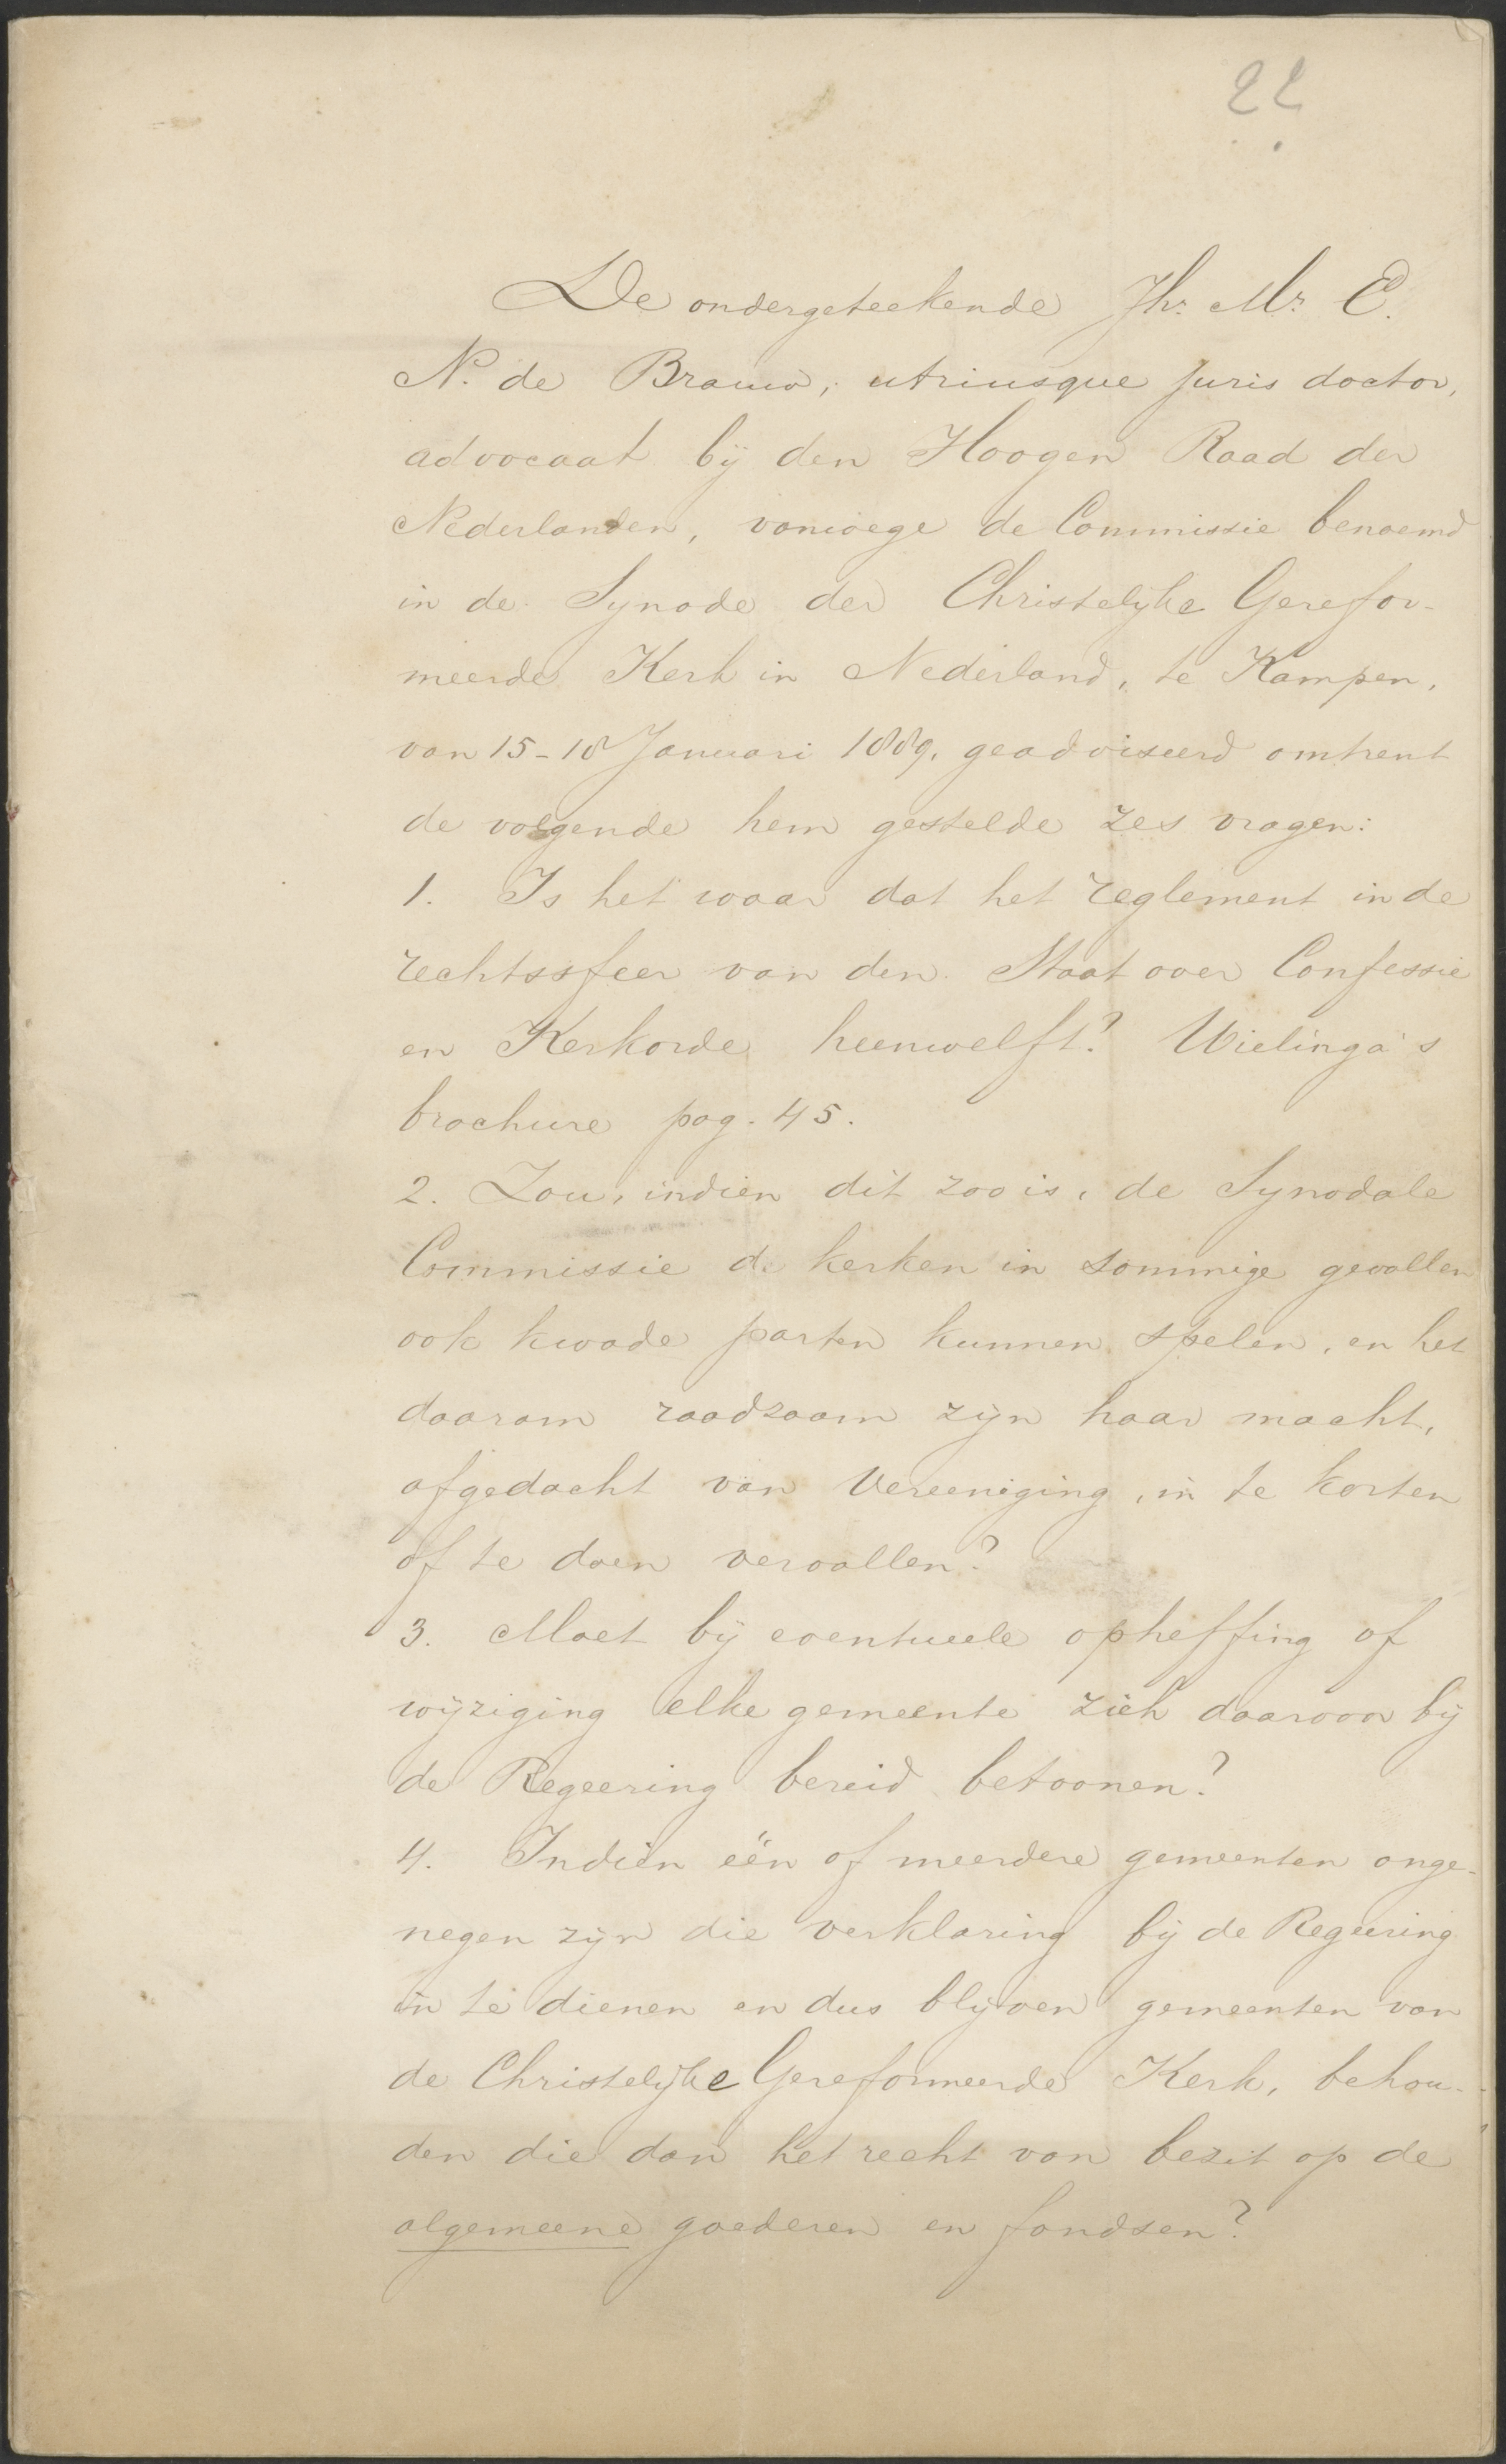 22
De ondergeteekende Jhr. Mr. E.
N. de Brauw, utriusque juris doctor,
advocaat bij den Hoogen Raad der
Nederlanden, vanwege de Commissie benoemd
in de Synode der Christelijke Gerefor-
meerde Kerk in Nederland, te Kampen,
van 15-18 Januari 1889, geadviseerd omtrent
de volgende hem gestelde zes vragen:
1. Is het waar dat het reglement in de
rechtssfeer van den Staat over Confessie
en Kerkorde heenwelft? Wielinga's
brochure pag. 45.
2. Zou, indien dit zoo is, de Synodale
Commissie de kerken in sommige gevallen
ook kwade parten kunnen spelen, en het
daarom raadzaam zijn haar macht,
afgedacht van Vereeniging, in te korten
of te doen vervallen?
3. Moet bij eventueele opheffing of
wijziging elke gemeente zich daarvoor bij
de Regeering bereid betoonen?
4. Indien eén of meerdere gemeenten onge-
negen zijn die verklaring bij de Regeering
in te dienen en dus blijven gemeenten van
de Christelijke Gereformeerde Kerk, behou-
den die dan het recht van bezit op de
algemeene goederen en fondsen?